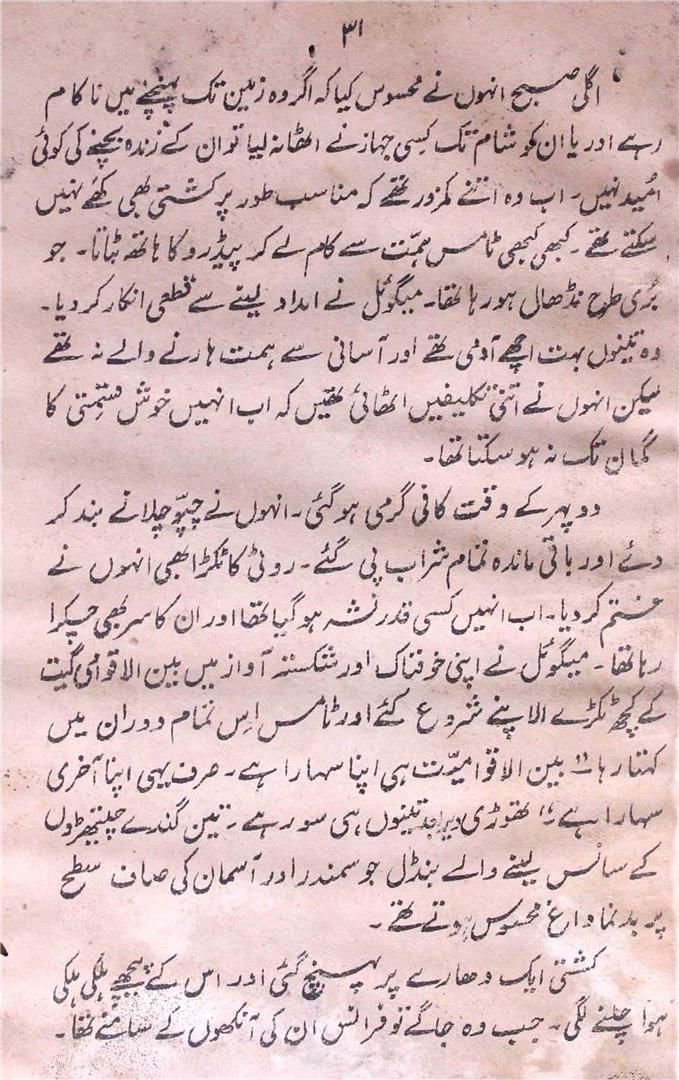 ۳۱
اگلی صبح انہوں نے محسوس کیا کہ اگر وہ زمین تک پہنچنے میں ناکام
رہے اور یا ان کو شام تک کسی جہاز نے اٹھا نہ لیا تو ان کے زندہ بچنے کی کوئی
امید نہیں۔ اب وہ اتنے کمزور تھے کہ مناسب طور پر کشتی بھی کھے نہیں
سکتے تھے۔ کبھی کبھی ٹامس ہمت سے کام لے کر پیڈرو کا ہاتھ بٹاتا۔ جو
بُری طرح نڈھال ہو رہا تھا۔ میگوئل نے امداد لینے سے قطعی انکار کر دیا۔
وہ تینوں بہت اچھے آدمی تھے اور آسانی سے ہمت ہارنے والے نہ تھے
لیکن انہوں نے اتنی تکلیفیں اٹھائی تھیں کہ اب انہیں خوش قسمتی کا
گمان تک نہ ہو سکتا تھا۔
دوپہر کے وقت کافی گرمی ہو گئی۔ انہوں نے چپّو چلانے بند کر
دئے اور باقی ماندہ تمام شراب پی گئے۔ روٹی کا ٹکڑا بھی انہوں نے
ختم کر دیا۔ اب انہیں کسی قدر نشہ ہو گیا تھا اور ان کا سر بھی چکرا
رہا تھا۔ میگوئل نے اپنی خوفناک اور شکستہ آواز میں بین الاقوامی گیت
کے کچھ ٹکڑے الاپنے شروع کئے اور ٹامس اِس تمام دوران میں
کہتا رہا "بین الاقوامیّت ہی اپنا سہارا ہے۔ صرف یہی اپنا آخری
سہارا ہے۔" تھوڑی دیر بعد تینوں ہی سو رہے۔ تین گندے چیتھڑوں
کے سانس لینے والے بنڈل جو سمندر اور آسمان کی صاف سطح
پر بدنما داغ محسوس ہوتے تھے۔
کشتی ایک دھارے پر پہنچ گئی اور اس کے پیچھے ہلکی ہلکی
ہوا چلنے لگی۔ جب وہ جاگے تو فرانس ان کی آنکھوں کے سامنے تھا۔